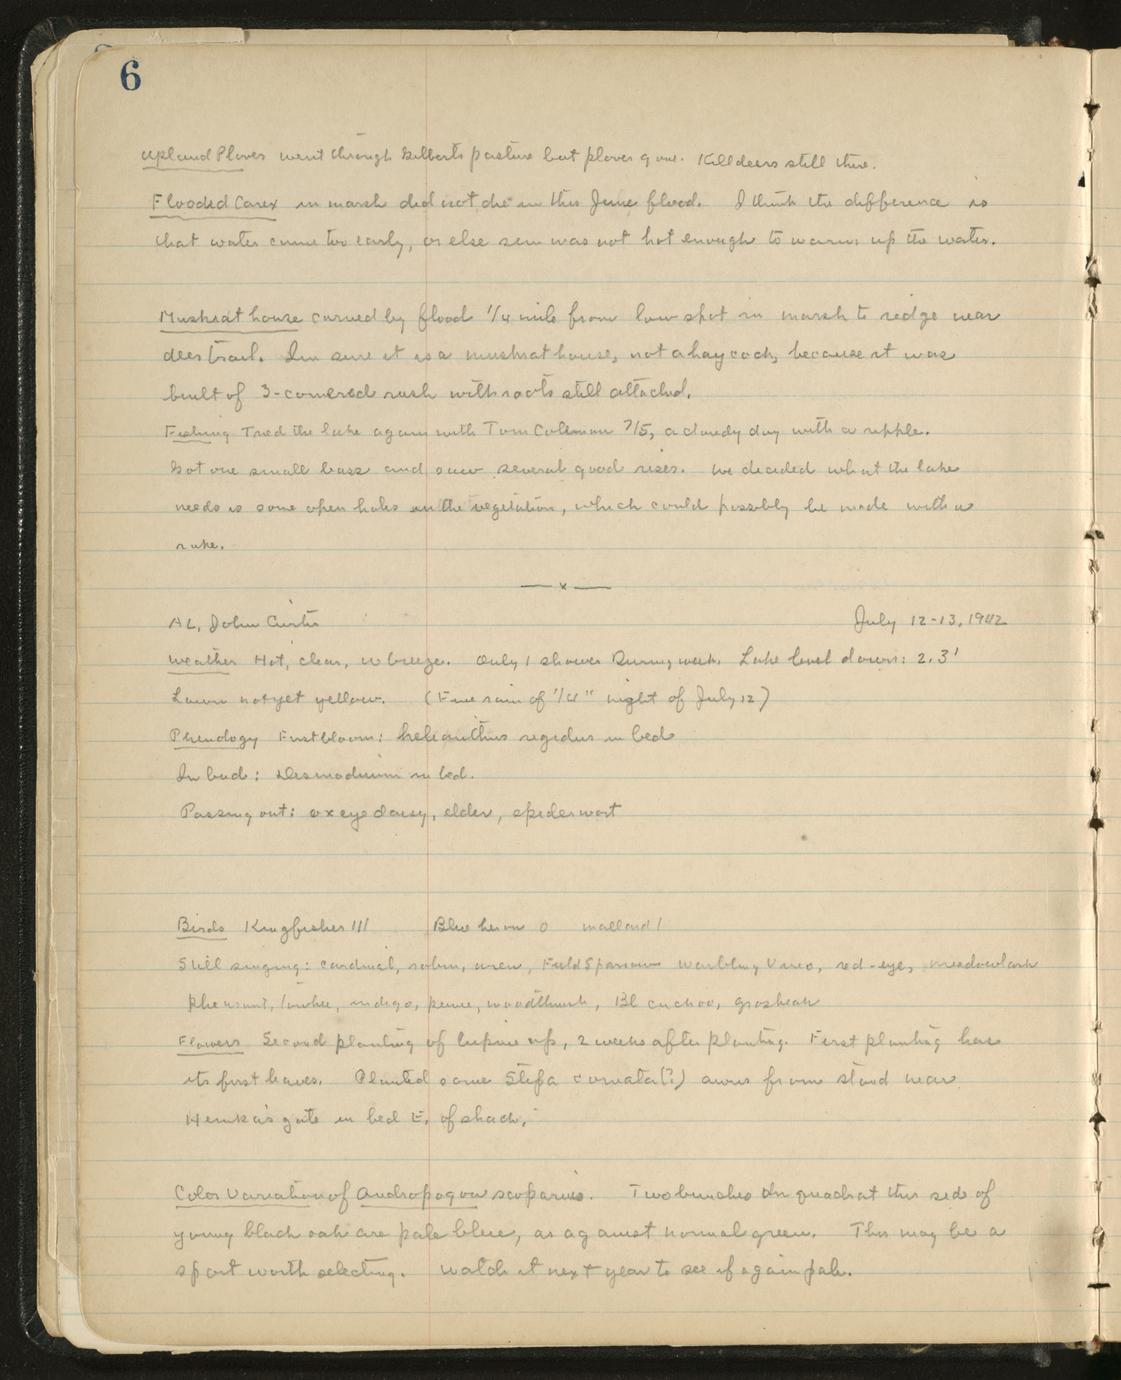 6
Upland Plover went through Gilberts pasture but plover gone. Killdeers still there.
Flooded Carex in marsh did not die in this June flood. I think the difference is
that water came too early, or else sun was not hot enough to warm up the water.
Muskrat house carried by flood 1/4 mile from low spot in marsh to ridge near
deer trail. Im sure it is a muskrat house, not a haycock, because it was
built of 3-cornered rush with roots still attached.
Fishing Tried the lake again with Tom Coleman 7/5, a cloudy day with a ripple.
Got one small bass and saw several good rises. We decided what the lake
needs is some open holes in the vegetation, which could possibly be made with a
rake.
— x —
AL, John Curtis July 12-13, 1942
Weather Hot, clear, w breeze. Only 1 shower during week. Lake level down: 2.3'
Lawn not yet yellow. (Fine rain of 1/4" night of July 12)
Phenology First bloom: helianthus rigidus in bed
In bud: Desmodium in bed.
Passing out: oxeye daisy, elder, spiderwort
Birds Kingfisher III Blue heron 0 mallard 1
Still singing: cardinal, robin, wren, Field Sparrow Warbling Vireo, red-eye, meadowlark
pheasant, towhee, indigo, pewee, woodthrush, Bl cuckoo, grosbeak
Flowers Second planting of lupine up, 2 weeks after planting. First planting has
its first leaves. Planted some Stipa comata(?) awns from stand near
Hemka's gate in bed E. of shack.
Color Variation of Andropogon scoparius. Two bunches in quadrat this side of
young black oak are pale blue, as against normal green. This may be a
sport worth selecting. Watch it next year to see if again pale.